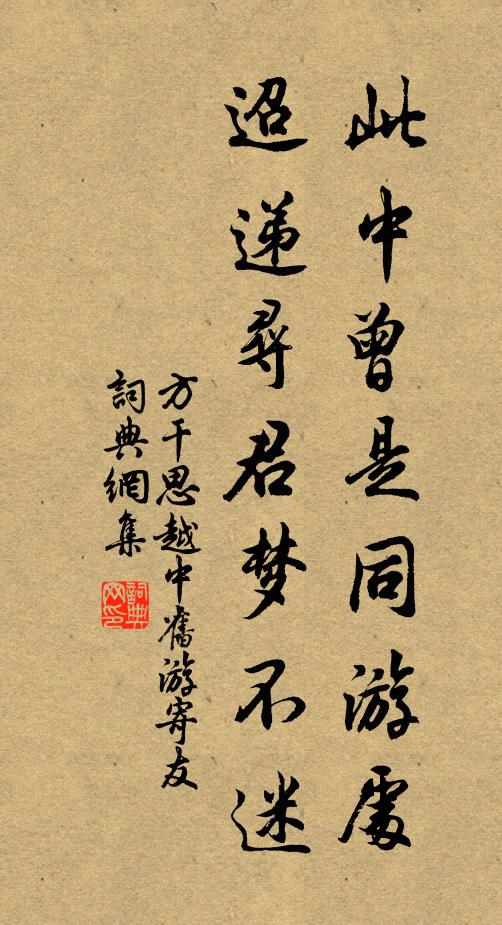 此中曾是同游處
迢递尋君梦不迷
方干思越中舊游寄友
詞典網集
詞典
网印